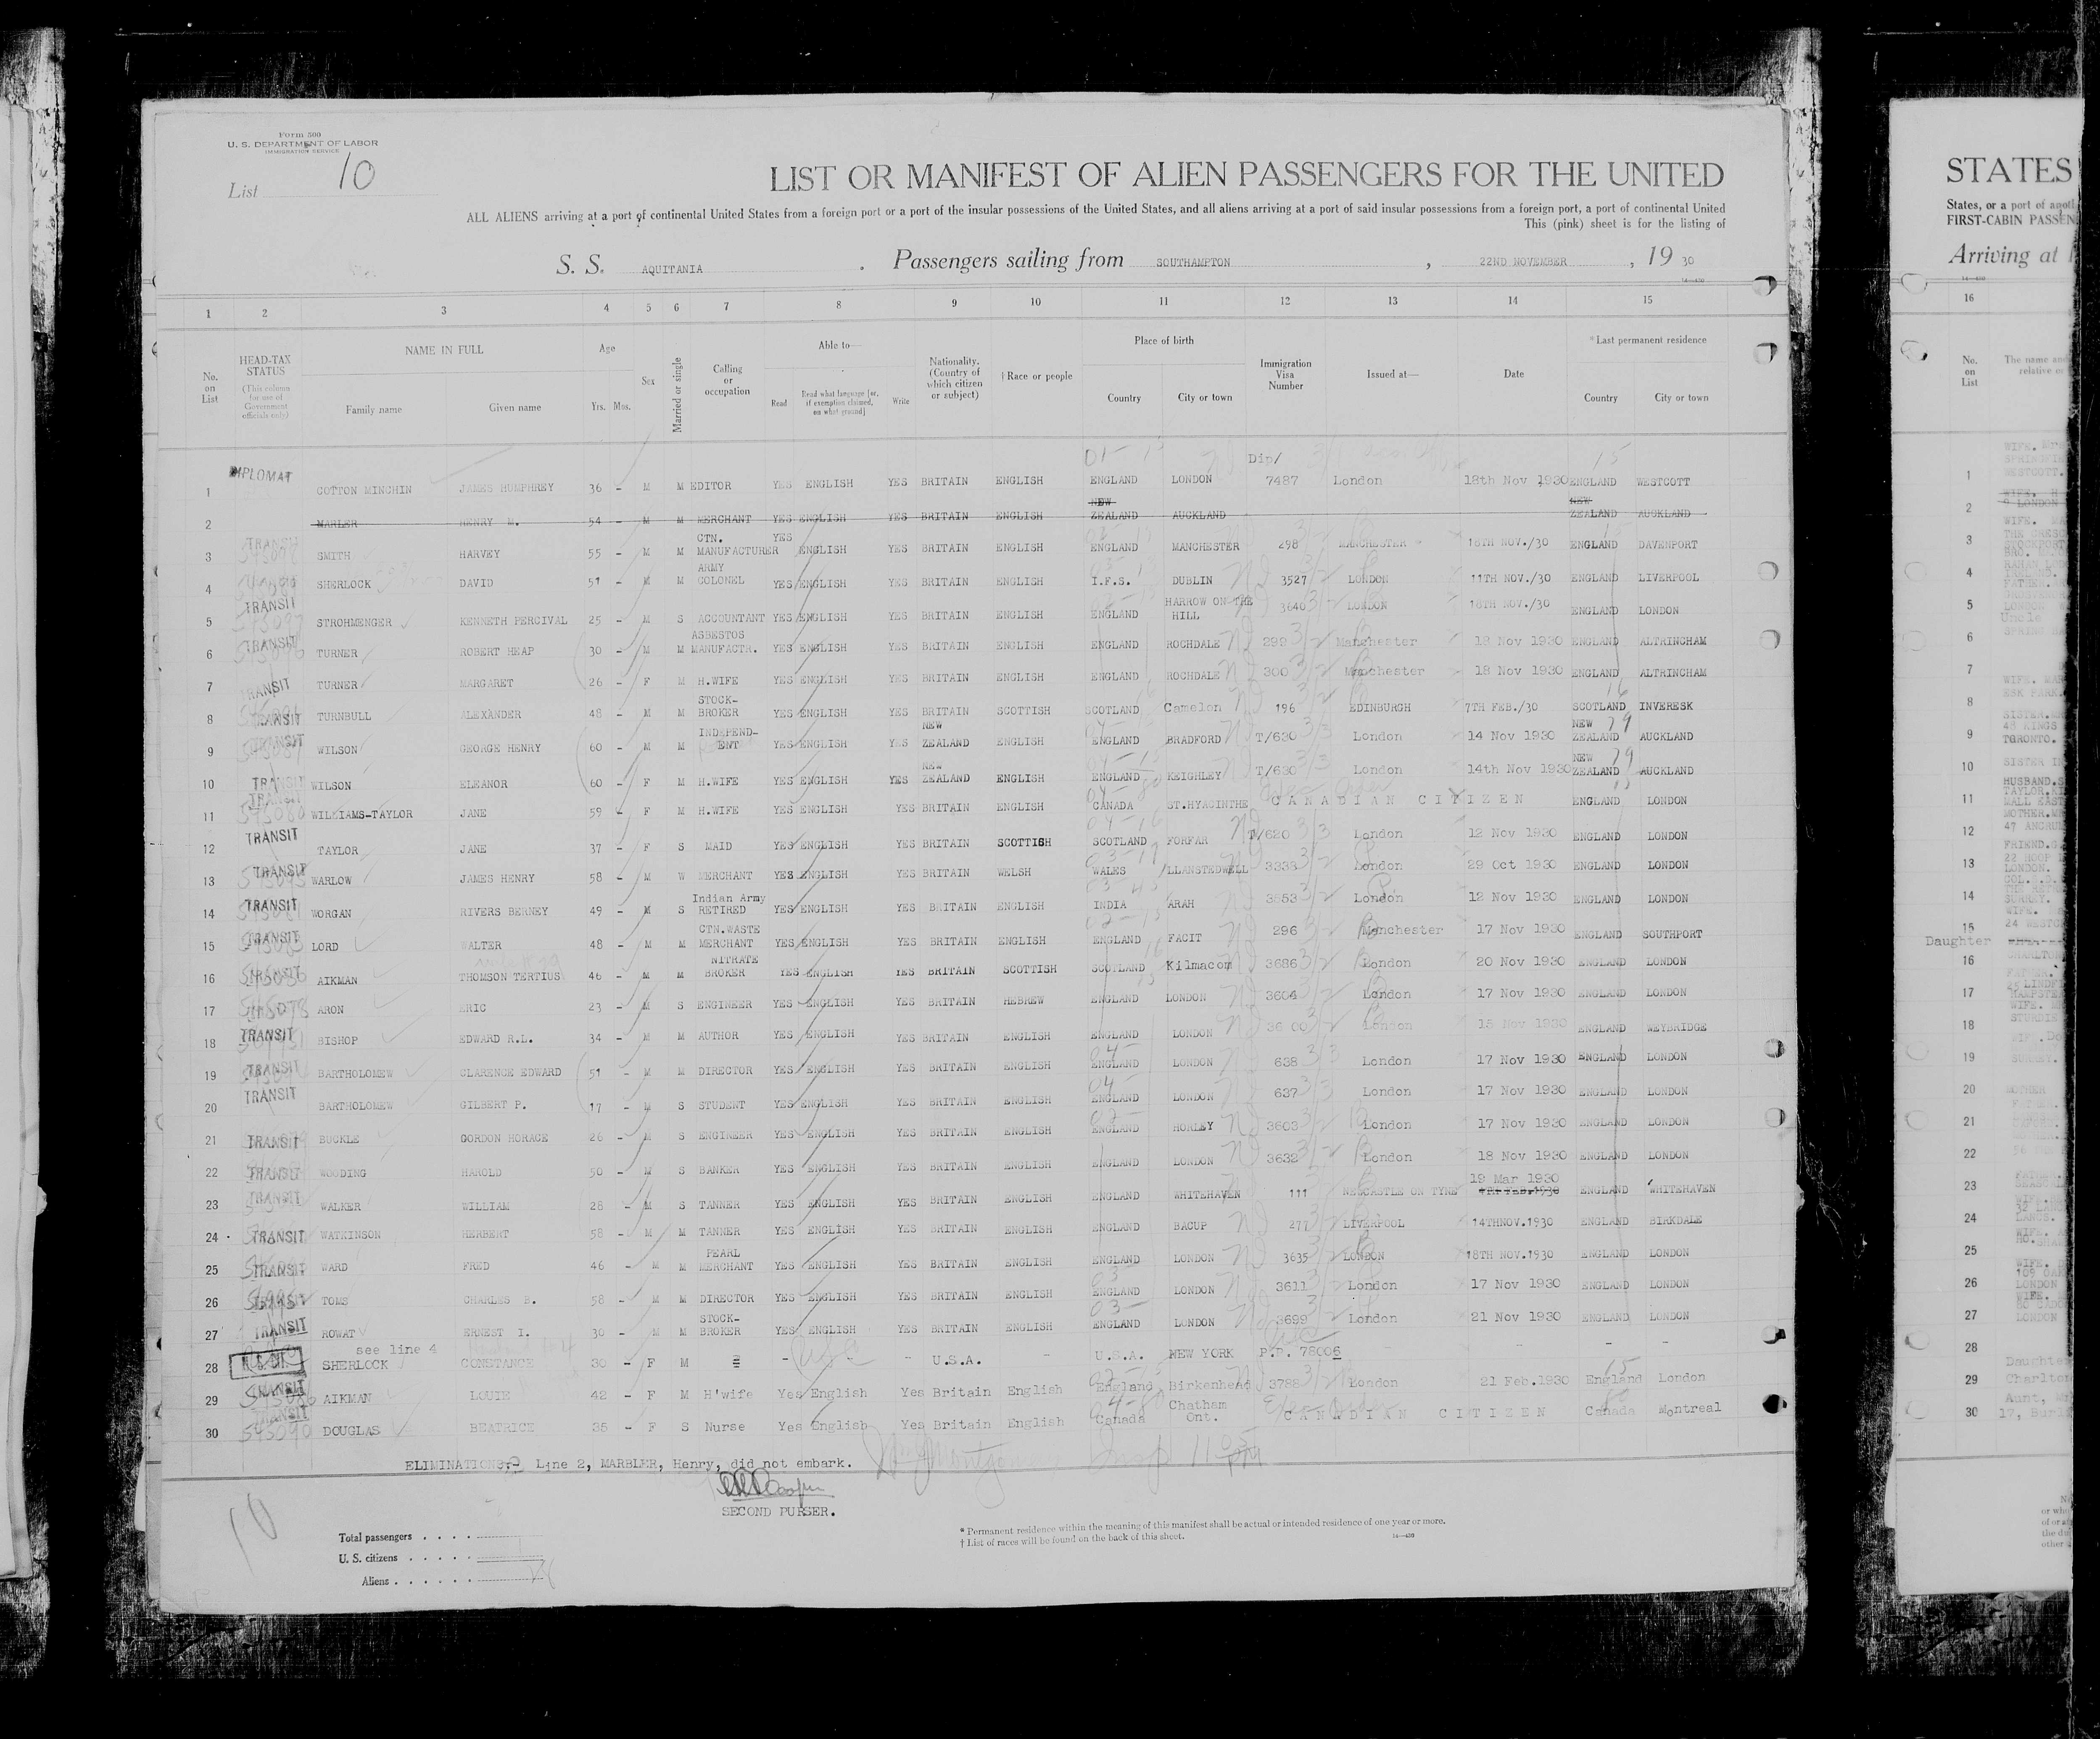 Form 500
U. S. DEPARTMENT OF LABOR
IMMIGRATION SERVICE
List 10
LIST OR MANIFEST OF ALIEN PASSENGERS FOR THE UNITED
ALL ALIENS arriving at a port of continental United States from a foreign port or a port of the insular possessions of the United States, and all aliens arriving at a port of said insular possessions from a foreign port, a port of continental United
This (pink) sheet is for the listing of
S. S. AQUITANIA , Passengers sailing from SOUTHAMPTON , 22ND NOVEMBER , 19 30
1 2 3 4 5 6 7 8 9 10 11 12 13 14 15
No. on List
HEAD-TAX STATUS (This column for use of Government officials only)
NAME IN FULL
Family name Given name
Age Yrs. Mos.
Sex
Married or single
Calling or occupation
Able to—
Read Read what language [or, if exemption claimed, on what ground] Write
Nationality. (Country of which citizen or subject)
† Race or people
Place of birth
Country City or town
Immigration Visa Number
Issued at—
Date
* Last permanent residence
Country City or town
1 DIPLOMAT COTTON MINCHIN JAMES HUMPHREY 36 - M M EDITOR YES ENGLISH YES BRITAIN ENGLISH ENGLAND LONDON Dip/ 7487 London 18th Nov 1930 ENGLAND WESTCOTT
2 MARLER HENRY M. 54 - M M MERCHANT YES ENGLISH YES BRITAIN ENGLISH NEW ZEALAND AUCKLAND NEW ZEALAND AUCKLAND
3 TRANSIT SMITH HARVEY 55 - M M CTN. MANUFACTURER YES ENGLISH YES BRITAIN ENGLISH ENGLAND MANCHESTER 298 MANCHESTER 18TH NOV./30 ENGLAND DAVENPORT
4 SHERLOCK DAVID 51 - M M ARMY COLONEL YES ENGLISH YES BRITAIN ENGLISH I.F.S. DUBLIN 3527 LONDON 11TH NOV./30 ENGLAND LIVERPOOL
5 TRANSIT STROHMENGER KENNETH PERCIVAL 25 - M S ACCOUNTANT YES ENGLISH YES BRITAIN ENGLISH ENGLAND HARROW ON THE HILL 3640 LONDON 18TH NOV./30 ENGLAND LONDON
6 TRANSIT TURNER ROBERT HEAP 30 - M M ASBESTOS MANUFACTR. YES ENGLISH YES BRITAIN ENGLISH ENGLAND ROCHDALE 299 Manchester 18 Nov 1930 ENGLAND ALTRINCHAM
7 TRANSIT TURNER MARGARET 26 - F M H.WIFE YES ENGLISH YES BRITAIN ENGLISH ENGLAND ROCHDALE 300 Manchester 18 Nov 1930 ENGLAND ALTRINCHAM
8 TRANSIT TURNBULL ALEXANDER 48 - M M STOCK-BROKER YES ENGLISH YES BRITAIN SCOTTISH SCOTLAND Camelon 196 EDINBURGH 7TH FEB./30 SCOTLAND INVERESK
9 TRANSIT WILSON GEORGE HENRY 60 - M M INDEPEND-ENT YES ENGLISH YES NEW ZEALAND ENGLISH ENGLAND BRADFORD T/630 London 14 Nov 1930 NEW ZEALAND AUCKLAND
10 TRANSIT WILSON ELEANOR 60 - F M H.WIFE YES ENGLISH YES NEW ZEALAND ENGLISH ENGLAND KEIGHLEY T/630 London 14th Nov 1930 NEW ZEALAND AUCKLAND
11 TRANSIT WILLIAMS-TAYLOR JANE 59 - F M H.WIFE YES ENGLISH YES BRITAIN ENGLISH CANADA ST.HYACINTHE CANADIAN CITIZEN ENGLAND LONDON
12 TRANSIT TAYLOR JANE 37 - F S MAID YES ENGLISH YES BRITAIN SCOTTISH SCOTLAND FORFAR T/620 London 12 Nov 1930 ENGLAND LONDON
13 TRANSIT WARLOW JAMES HENRY 58 - M W MERCHANT YES ENGLISH YES BRITAIN WELSH WALES LLANSTEDWELL 3338 London 29 Oct 1930 ENGLAND LONDON
14 TRANSIT WORGAN RIVERS BERNEY 49 - M S Indian Army RETIRED YES ENGLISH YES BRITAIN ENGLISH INDIA ARAH 3553 London 12 Nov 1930 ENGLAND LONDON
15 TRANSIT LORD WALTER 48 - M M CTN.WASTE MERCHANT YES ENGLISH YES BRITAIN ENGLISH ENGLAND FACIT 296 Manchester 17 Nov 1930 ENGLAND SOUTHPORT
16 TRANSIT AIKMAN THOMSON TERTIUS 46 - M M NITRATE BROKER YES ENGLISH YES BRITAIN SCOTTISH SCOTLAND Kilmacom 3686 London 20 Nov 1930 ENGLAND LONDON
17 ARON ERIC 23 - M S ENGINEER YES ENGLISH YES BRITAIN HEBREW ENGLAND LONDON 3604 London 17 Nov 1930 ENGLAND LONDON
18 TRANSIT BISHOP EDWARD R.L. 34 - M M AUTHOR YES ENGLISH YES BRITAIN ENGLISH ENGLAND LONDON 3600 London 15 Nov 1930 ENGLAND WEYBRIDGE
19 TRANSIT BARTHOLOMEW CLARENCE EDWARD 51 - M M DIRECTOR YES ENGLISH YES BRITAIN ENGLISH ENGLAND LONDON 638 London 17 Nov 1930 ENGLAND LONDON
20 TRANSIT BARTHOLOMEW GILBERT P. 17 - M S STUDENT YES ENGLISH YES BRITAIN ENGLISH ENGLAND LONDON 637 London 17 Nov 1930 ENGLAND LONDON
21 TRANSIT BUCKLE GORDON HORACE 26 - M S ENGINEER YES ENGLISH YES BRITAIN ENGLISH ENGLAND HORLEY 3603 London 17 Nov 1930 ENGLAND LONDON
22 TRANSIT WOODING HAROLD 50 - M S BANKER YES ENGLISH YES BRITAIN ENGLISH ENGLAND LONDON 3632 London 18 Nov 1930 ENGLAND LONDON
23 TRANSIT WALKER WILLIAM 28 - M S TANNER YES ENGLISH YES BRITAIN ENGLISH ENGLAND WHITEHAVEN 111 NEWCASTLE ON TYNE 19 Mar 1930 ENGLAND WHITEHAVEN
24 TRANSIT WATKINSON HERBERT 58 - M M TANNER YES ENGLISH YES BRITAIN ENGLISH ENGLAND BACUP 277 LIVERPOOL 14THNOV.1930 ENGLAND BIRKDALE
25 TRANSIT WARD FRED 46 - M M PEARL MERCHANT YES ENGLISH YES BRITAIN ENGLISH ENGLAND LONDON 3635 LONDON 18TH NOV.1930 ENGLAND LONDON
26 TRANSIT TOMS CHARLES B. 58 - M M DIRECTOR YES ENGLISH YES BRITAIN ENGLISH ENGLAND LONDON 3611 London 17 Nov 1930 ENGLAND LONDON
27 TRANSIT ROWAT ERNEST I. 30 - M M STOCK-BROKER YES ENGLISH YES BRITAIN ENGLISH ENGLAND LONDON 3699 London 21 Nov 1930 ENGLAND LONDON
see line 4
28 U.S. CIT. SHERLOCK CONSTANCE 30 - F M - - - - U.S.A. U.S.A. NEW YORK P.P. 78006 - - - -
29 TRANSIT AIKMAN LOUIE 42 - F M H'wife Yes English Yes Britain English England Birkenhead 3788 London 21 Feb.1930 England London
30 TRANSIT 593090 DOUGLAS BEATRICE 35 - F S Nurse Yes English Yes Britain English Canada Chatham Ont. CANADIAN CITIZEN Canada Montreal
ELIMINATIONS:- Line 2, MARBLER, Henry, did not embark.
SECOND PURSER.
10
Total passengers
U. S. citizens
Aliens
* Permanent residence within the meaning of this manifest shall be actual or intended residence of one year or more.
† List of races will be found on the back of this sheet.
14—430
STATES
States, or a port of
FIRST-CABIN
Arriving at
16
No. on List
The name
relative or
1 WIFE.
WESTCOTT.
2
3 WIFE.
4
5
6 Uncle
7
8 WIFE. MAR
ESK PARK.
9 SISTER.
48 KINGS
TORONTO.
10 SISTER IN
11 HUSBAND.
TAYLOR.
MALL EAST
12 MOTHER.
13 FRIEND.
LONDON.
14 SURREY.
15 WIFE.
Daughter
16
17
18
19
20 MOTHER
21
22
23
24
25 WIFE.
26 LONDON
27 WIFE.
LONDON
28
29 Daughter
Charlton
30 Aunt,